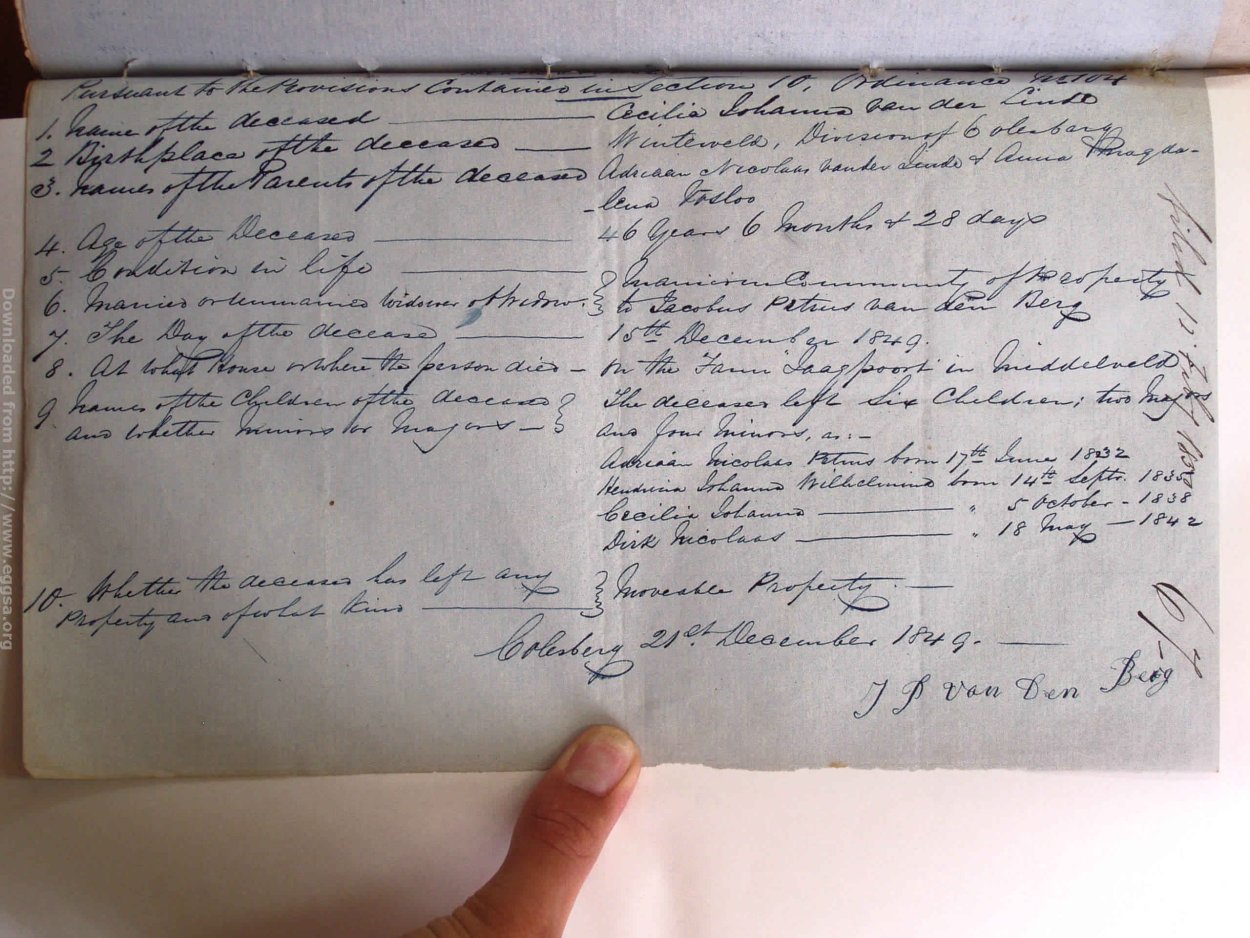 Pursuant to the Provisions Contained in Section 10, Ordinance No 104
1. Name of the deceased — Cecilia Johanna van der Linde
2 Birthplace of the deceased — Winterveld, Division of Colesberg
3. Names of the Parents of the deceased Adriaan Nicolaas van der Linde & Anna Magda-
-lena Fosloo
4. Age of the Deceased — 46 Years 6 Months & 28 days
5. Condition in life —
6. Married or Unmarried Widower or Widow. } Married in Community of Property
to Jacobus Petrus van den Berg
7. The Day of the decease — 15th December 1849.
8. At what House or where the person died — On the Farm Jaagpoort in Middelveld
9 Names of the Children of the deceased } The deceased left Six Children; two Majors
and whether Minors or Majors — } and four Minors, as:—
Adriaan Nicolaas Petrus born 17th June 1832
Hendrina Johanna Wilhelmina born 14th Septr. 1835
Cecilia Johanna — " 5 October - 1838
Dirk Nicolaas — " 18 May — 1842
10. Whether the deceased has left any } Moveable Property. —
Property and of what kind —
Colesberg 21st. December 1849. —
J P van Den Berg
Filed 12 Feby 1850
Downloaded from http://www.eggsa.org